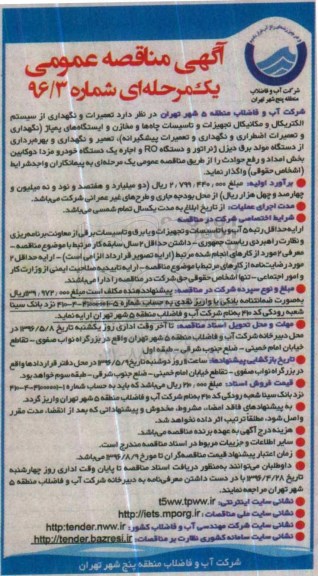 آگهی مناقصه عمومی
یک‌مرحله‌ای شماره ۹۶/۳
شرکت آب و فاضلاب
منطقه پنج شهر تهران
شرکت آب و فاضلاب منطقه ۵ شهر تهران در نظر دارد تعمیرات و نگهداری از سیستم
الکتریکال و مکانیکال تجهیزات و تاسیسات چاه‌ها و مخازن و ایستگاه‌های پمپاژ (نگهداری
و تعمیرات اضطراری و نگهداری و تعمیرات پیشگیرانه)، تعمیر و نگهداری و بهره‌برداری
از دستگاه مولد برق دیزل ژنراتور و دستگاه RO و اجاره یک دستگاه خودرو مزدا دوکابین
بخش امداد و رفع حوادث را از طریق مناقصه عمومی یک مرحله‌ای به پیمانکاران واجدشرایط
(اشخاص حقوقی) واگذار نماید.
برآورد اولیه: مبلغ ۲/۷۹۹/۴۴۰/۰۰۰ ریال (دو میلیارد و هفتصد و نود و نه میلیون و
چهارصد و چهل هزار ریال) از محل بودجه جاری و طرح‌های غیر عمرانی شرکت می‌باشد.
مدت اجرای عملیات: از تاریخ ابلاغ به مدت یکسال تمام شمسی می‌باشد.
شرایط اختصاصی شرکت در مناقصه:
ارایه حداقل رتبه ۵ آب و یا تاسیسات و تجهیزات و یا برق و تاسیسات برقی از معاونت برنامه‌ریزی
و نظارت راهبردی ریاست جمهوری - داشتن حداقل ۲ سال سابقه کار مرتبط با موضوع مناقصه -
معرفی ۲ مورد از کارهای انجام شده مرتبط (ارایه تصویر قرارداد الزامی است) - ارایه حداقل ۲
مورد رضایت‌نامه از کارهای مرتبط با موضوع مناقصه - ارایه تاییدیه صلاحیت ایمنی از وزارت کار
و امور اجتماعی - تنها اشخاص حقوقی حق شرکت در مناقصه را دارا می‌باشند.
مبلغ و نوع سپرده شرکت در مناقصه: پیشنهاددهنده مکلف است مبلغ ریال
به‌صورت ضمانتنامه بانکی یا واریز نقدی به حساب شماره نزد بانک سینا
شعبه رودکی کد ۲۱۰ به‌نام شرکت آب و فاضلاب منطقه ۵ شهر تهران ارایه نماید.
مهلت و محل تحویل اسناد مناقصه: تا آخر وقت اداری روز یکشنبه تاریخ ۱۳۹۶/۵/۸ در
محل دبیرخانه شرکت آب و فاضلاب منطقه ۵ شهر تهران واقع در بزرگراه نواب صفوی - تقاطع
خیابان امام خمینی - ضلع جنوب شرقی - طبقه اول
تاریخ بازگشایی پیشنهادها: ساعت ۹ روز دوشنبه تاریخ ۱۳۹۶/۵/۹ در محل دفتر قراردادها واقع
در بزرگراه نواب صفوی - تقاطع خیابان امام خمینی - ضلع جنوب شرقی - طبقه سوم خواهد بود.
قیمت فروش اسناد: مبلغ ریال می‌باشد که باید به حساب شماره
نزد بانک سینا شعبه رودکی کد ۲۱۰ به‌نام شرکت آب و فاضلاب منطقه ۵ شهر تهران واریز گردد.
به پیشنهادهای فاقد امضاء، مشروط، مخدوش و پیشنهاداتی که بعد از انقضاء مدت مقرر
واصل شود، مطلقا ترتیب اثر داده نخواهد شد.
هزینه درج آگهی به عهده برنده مناقصه می‌باشد.
سایر اطلاعات و جزییات مربوط در اسناد مناقصه مندرج است.
زمان اعتبار پیشنهاد قیمت مناقصه‌گران تا مورخ ۱۳۹۶/۸/۹ می‌باشد.
داوطلبان می‌توانند به‌منظور دریافت اسناد مناقصه تا پایان وقت اداری روز چهارشنبه
تاریخ ۱۳۹۶/۴/۲۸ با در دست داشتن معرفی‌نامه به دبیرخانه شرکت آب و فاضلاب منطقه ۵
شهر تهران مراجعه نمایند.
نشانی سایت اینترنتی: t5ww.tpww.ir
نشانی سایت ملی مناقصات: http://iets.mporg.ir
نشانی سایت شرکت مهندسی آب و فاضلاب کشور: http:tender.nww.ir
نشانی سایت سامانه کشوری نظارت بر مناقصات: http://tender.bazresi.ir
شرکت آب و فاضلاب منطقه پنج شهر تهران